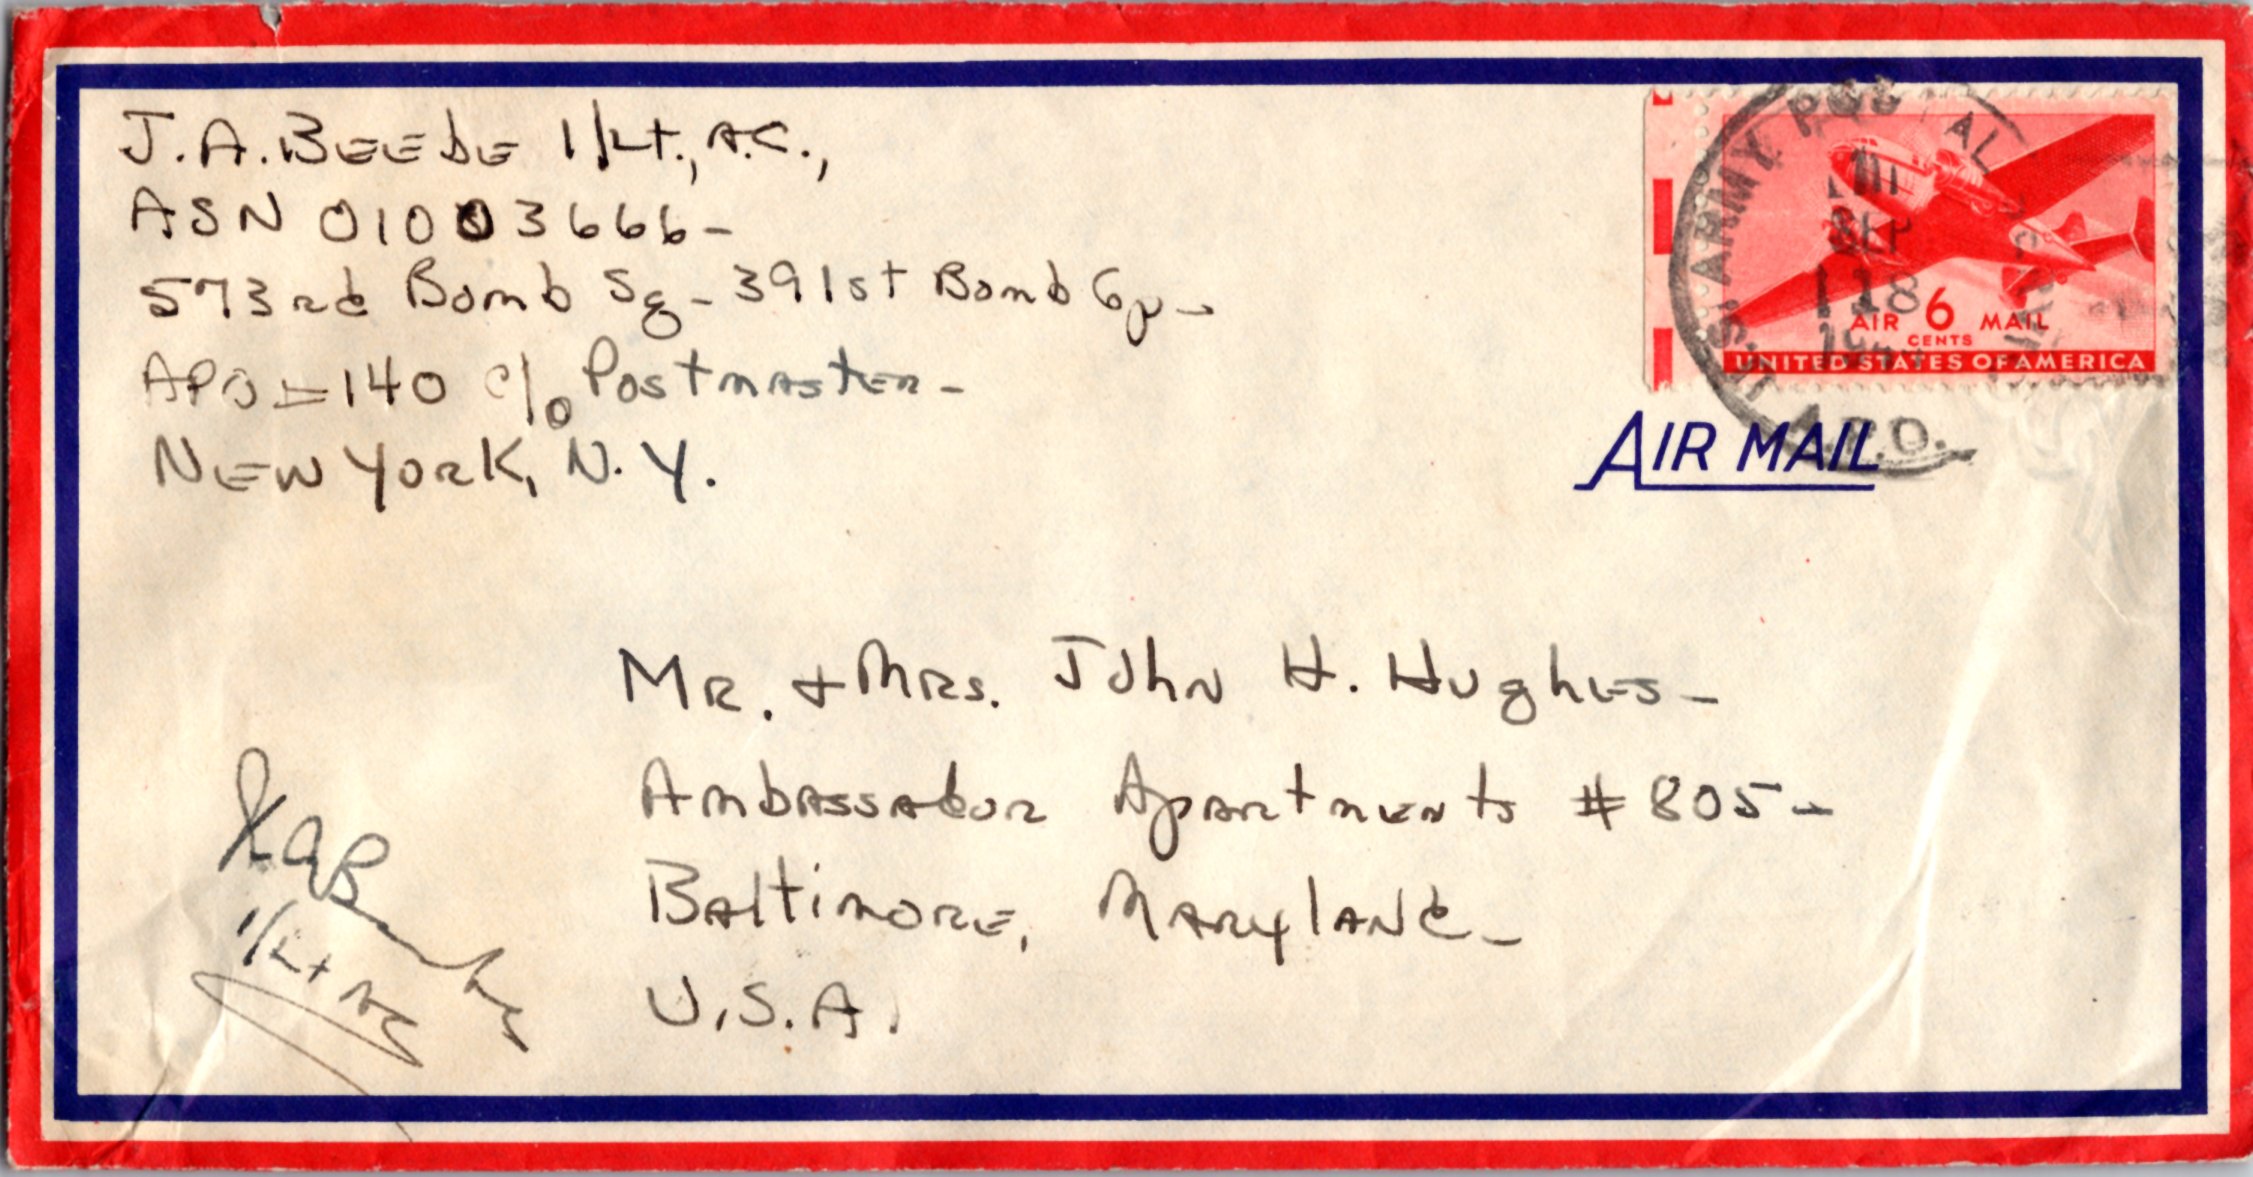 J.A. BEEBE 1/Lt., A.C.,
ASN 01003666-
573rd Bomb Sq - 391st Bomb Gp -
APO = 140 c/o Postmaster -
New York, N.Y.
U.S. ARMY POSTAL
SEP
18
A.P.O.
AIR 6 MAIL
CENTS
UNITED STATES OF AMERICA
AIR MAIL
Mr. + Mrs. John H. Hughes -
Ambassador Apartments # 805 -
Baltimore, Maryland -
U.S.A.
1/Lt AC